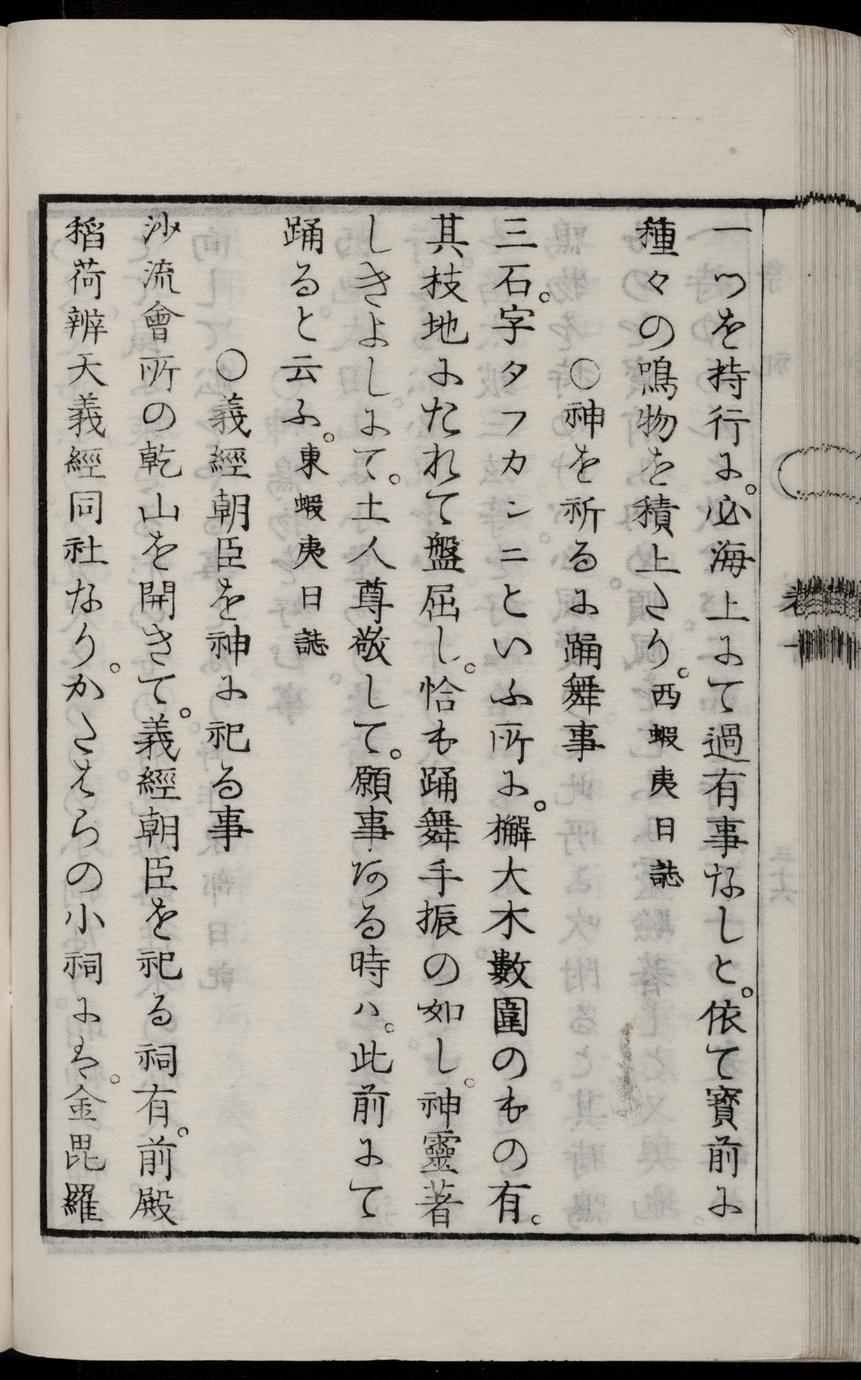 一つを持行に。必海上にて過有事なしと。依て寳前に
種々の鳴物を積上たり。西蝦夷日誌
〇神を祈るに踊舞事
三石。字タフカンニといふ所に。槲大木數圍のもの有。
其枝地にたれて盤屈し。恰も踊舞手振の如し。神靈著
しきよしにて。土人尊敬して。願事ある時ハ。此前にて
踊ると云ふ。東蝦夷日誌
〇義經朝臣を神に祀る事
沙流會所の乾山を開きて。義經朝臣を祀る祠有。前殿
稻荷辨天義經同社なり。かたはらの小祠には。金毘羅